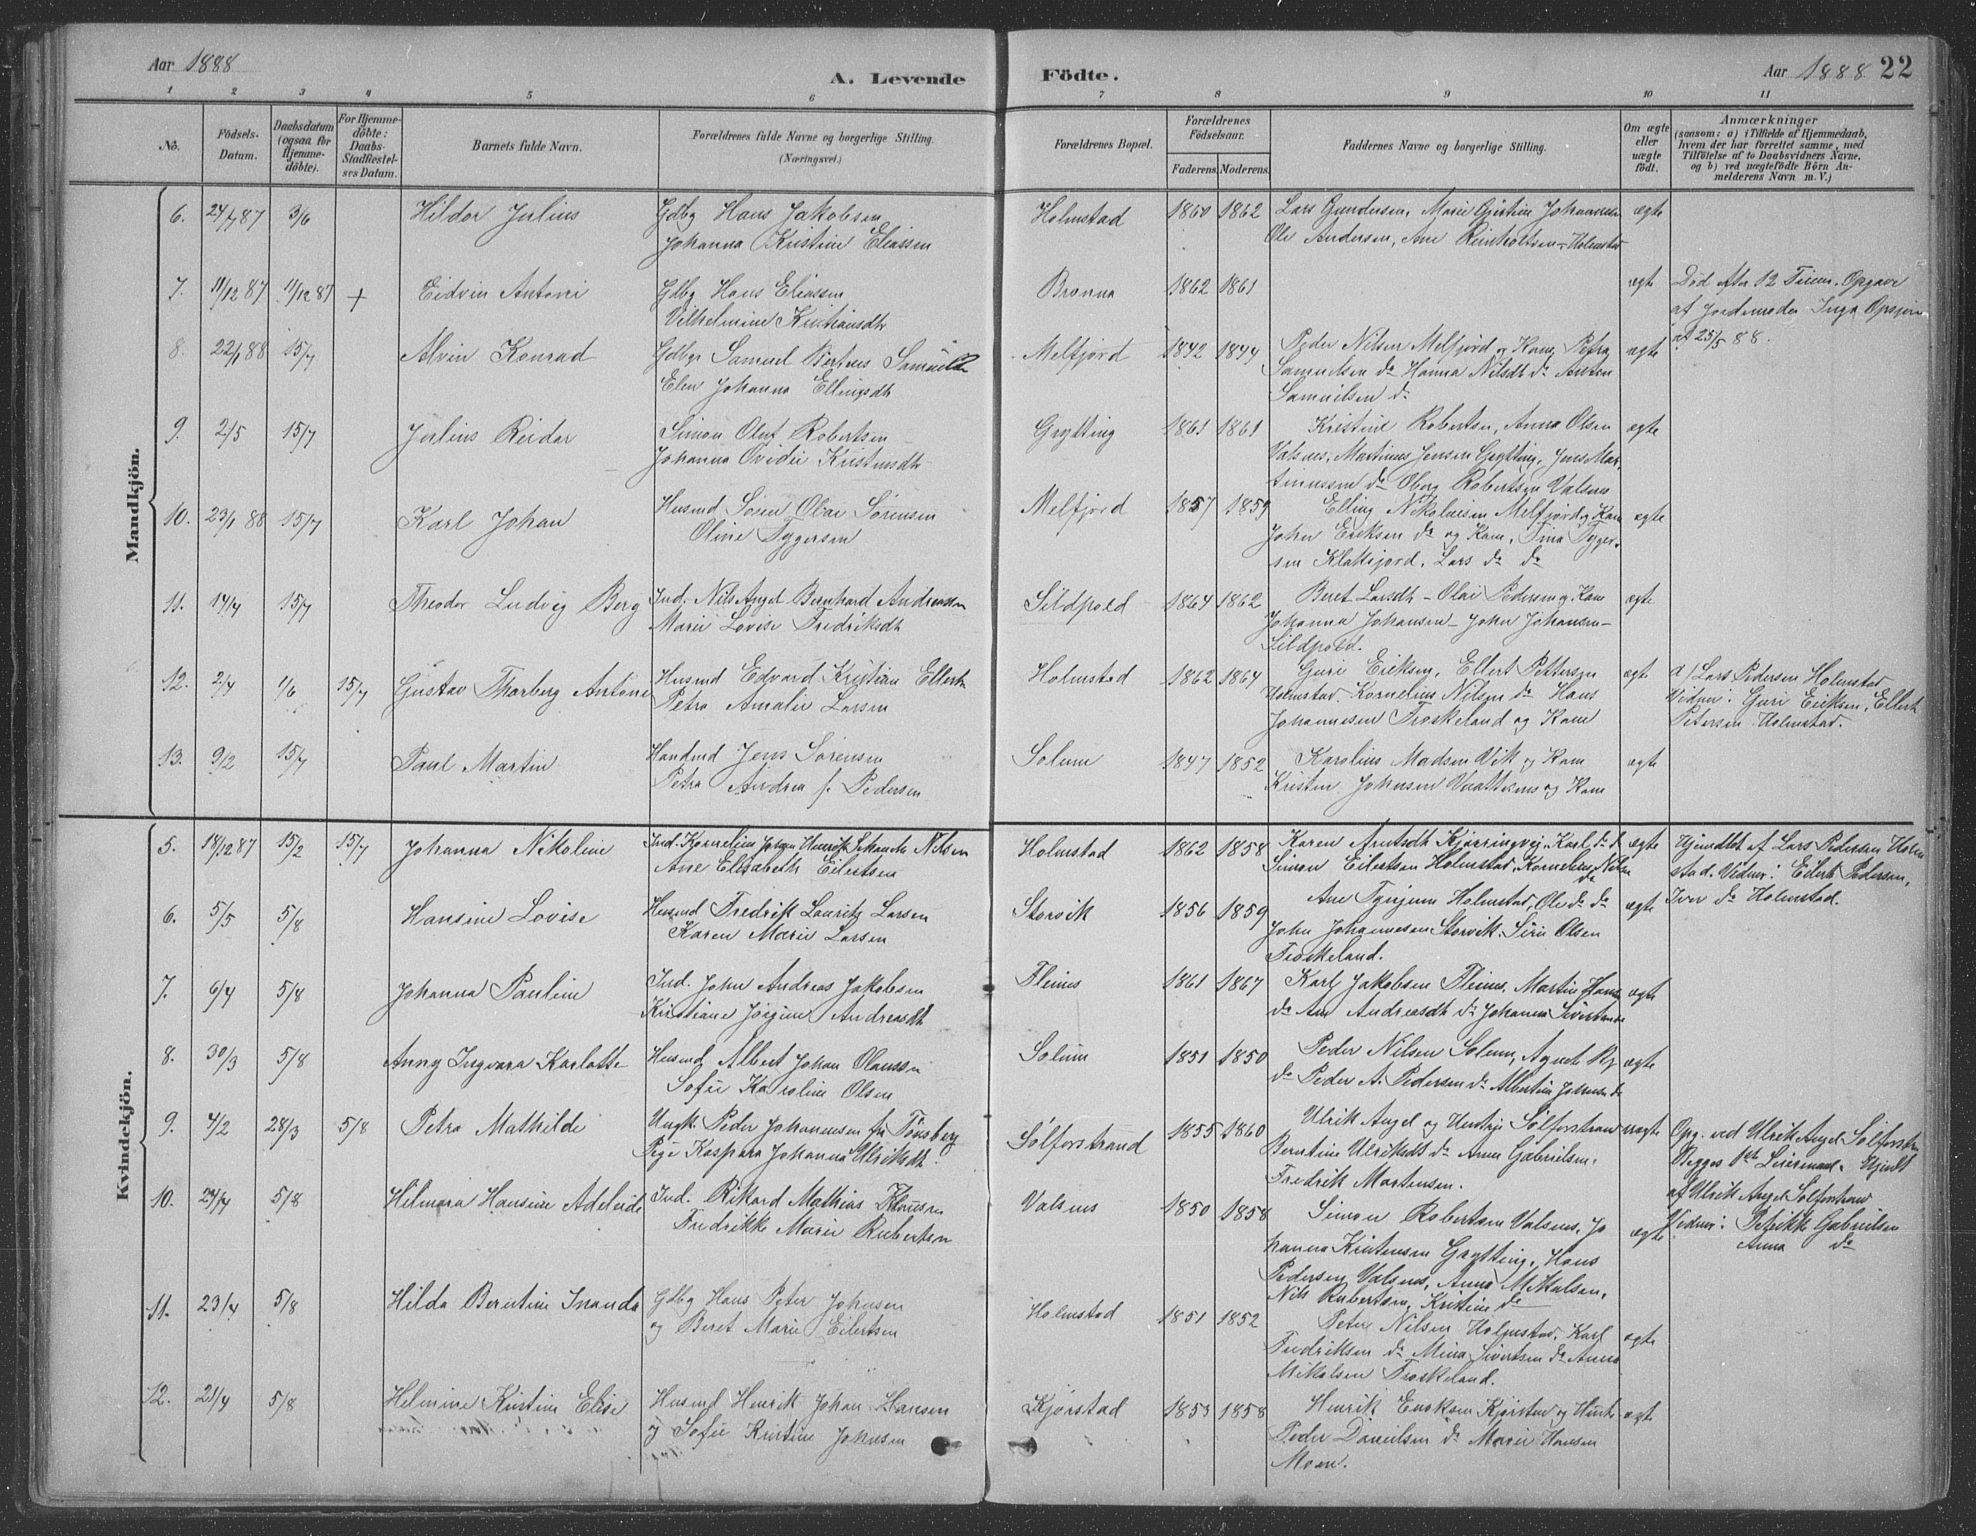 Aar 1888
A. Levende
Födte.
Aar 1888. 22
1 2 3 4 5 6 7 8 9 10 11
No.
Födsels-
Datum.
Daabsdatum
(ogsaa for
Hjemme-
döbte).
For Hjemme-
döbte:
Daabs-
Stadfæstel-
ses Datum.
Barnets fulde Navn.
Forældrenes fulde Navne og borgerlige Stilling.
(Næringsvei.)
Forældrenes Bopæl.
Forældrenes
Födselsaar.
Faderens. Moderens.
Faddernes Navne og borgerlige Stilling.
Om ægte
eller
uægte
födt.
Anmærkninger
(saasom: a) i Tilfælde af Hjemmedaab,
hvem der har forrettet samme, med
Tilföielse af to Daabsvidners Navne,
og b) ved uægtefödte Börn An-
melderens Navn m. V.)
Mandkjön.
6. 24/7 87 3/6 Hildor Julius
Gdbg Hans Jakobsen
Johanna Kristine Eliassen
Holmstad 1860 1862
Lars Gundersen, Marie Johannesen
Ole Andersen, Ane Reinholtsen Holmstad
ægte
7. 11/12 87 11/12 87 + Eidvin Antoni
Gdbg Hans Eliassen
Vilhelmine Kristiansdtr
Brønna 1862 1861 ægte
Død efter 12 Timer. Opgave
af Jordemoder Inga
af 25/5 88.
8. 22/1 88 15/7 Alvin Konrad
Gdbgr Samuel Samuels
Elen Johanna Ellingsdtr
Melfjord 1842 1844
Peder Nilsen Melfjord og Kone, Petra
Samuelsen do Hanna Nilsdtr do Anton
Samuelsen do
ægte
9. 2/5 15/7 Julius Reidar
Simon Oluf Robertsen
Johanna Ovidie Kristensdtr
Grytting 1861 1861
Kristine Robertsen, Anna Olsen
Valsnes, Martinus Jensen Grytting, Jens Mar-
tinussen do Robertsen Valsnes
ægte
10. 23/1 88 15/7 Karl Johan
Husmd Sören Olai Sörensen
Oline Tygersen
Melfjord 1857 1859
Elling Nikolaisen Melfjord og Kone
John Eriksen do og Kone, Tina Tyger-
sen Klaksjord, Lars do do
ægte
11. 14/4 15/7 Theodor Ludvig Berg
Ind. Nils Angel Bernhard Andreassen
Marie Lovise Fredriksdtr
Sildpold 1864 1862
Beret Larsdtr – Olai Pedersen og Kone
Johanna Johansen – John Johansen –
Sildpold.
ægte
12. 2/4 1/6 15/7 Gustav Thorberg Antone
Husmd Edvard Kristian Ellerts
Petra Amalie Larsen
Holmstad 1862 1864
Guri Eriksen, Ellert Pettersen
Holmstad Kornelius Nilsen do Hans
Johannesen Froskeland og Kone
ægte
a) Lars Pedersen Holmstad
Vidner: Guri Eriksen, Ellert
Petersen Holmstad.
13. 9/2 15/7 Paul Martin
Jens Sörensen
Petra Andrea f. Pedersen
Solum 1847 1852
Karolius Madsen Vik og Kone
Kristen Johnsen og Kone
ægte
Kvindekjön.
5. 18/12 87 15/2 15/7 Johanna Nikoline
Ind. Kornelius Johan Henrik Nilsen
Ane Elisabeth Eilertsen
Holmstad 1862 1858
Karen Arntsdtr Kjørringvig, Karl do do
Simon Eilertsen Holmstad, Kornelius Nilsen do
ægte
Hjemdbt af Lars Pedersen Holm
stad. Vidner: Eilert Pedersen,
Iver do Holmstad.
6. 5/5 5/8 Hansine Lovise
Husmd Fredrik Lauritz Larsen
Karen Marie Larsen
Storvik 1856 1859
Ane Holmstad, Ole do do
John Johannesen Storvik. Siri Olsen
Froskeland.
ægte
7. 6/4 5/8 Johanna Pauline
Ind. John Andreas Jakobsen
Kristiane Jörgine Andreasdtr
Fleines 1861 1867
Karl Jakobsen Fleines, Martin Hansen
do Ane Andreasdtr do Johanna Sivertsen do
ægte
8. 30/3 5/8 Anny Ingvara Karlotte
Husmd Albert Johan Olaussen
Sofie Karoline Olsen
Solum 1851 1850
Peder Nilsen Solum, Agnete
do Peder A. Pedersen do Albertine Johnsen do
ægte
9. 4/2 28/3 5/8 Petra Mathilde
Ungk. Peder Johannesen fra Tönsberg
Pige Kaspara Johanna Ulriksdtr.
Sölforstrand 1855 1860
Ulrik Angel og Hustru Sölforstrand
Berntine Ulriksdtr do Anna Gabrielsen.
Fredrik Martensen.
uægte
Opg. ved Ulrik Angel Sölforstr.
Begges 1ste Leiermaal. Hjdbt
af Ulrik Angel Sölforstrand
Vidner: Petrikke Gabrielsen
Anna do
10. 24/4 5/8 Helmara Hansine Adelaide
Ind. Rikard Mathias Klausen
Fredrikke Marie Robertsen
Valsnes 1850 1858
Simon Robertsen Valsnes, Jo
hanna Kristensen Grytting, Hans
Pedersen Valsnes, Anna Mikalsen,
Nils Robertsen, Kristine do
ægte
11. 23/4 5/8 Hilda Berntine Iranda
Gdbg Hans Peter Johnsen
og Beret Marie Eilertsen
Holmstad 1851 1852
Peter Nilsen Holmstad, Karl
Fredriksen do Mina Sivertsen do Anna
Mikalsen Froskeland.
ægte
12. 21/4 5/8 Helmine Kristine Elise
Husmd Henrik Johan Hansen
og Sofie Kristine Johnsen
Kjörstad 1853 1858
Henrik Eriksen Kjörstad og Hustr
Peder Danielsen do Marie Hansen
Moen.
ægte